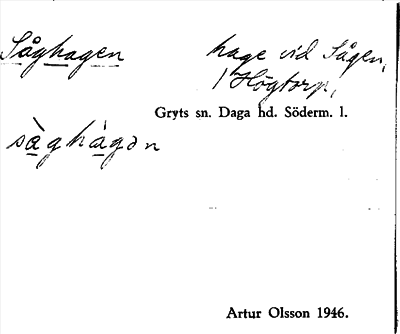 Såghagen
hage vid Sågen,
/ Högtorp,
Gryts sn. Daga hd. Söderm. l.
sàghàgən
Artur Olsson 1946.